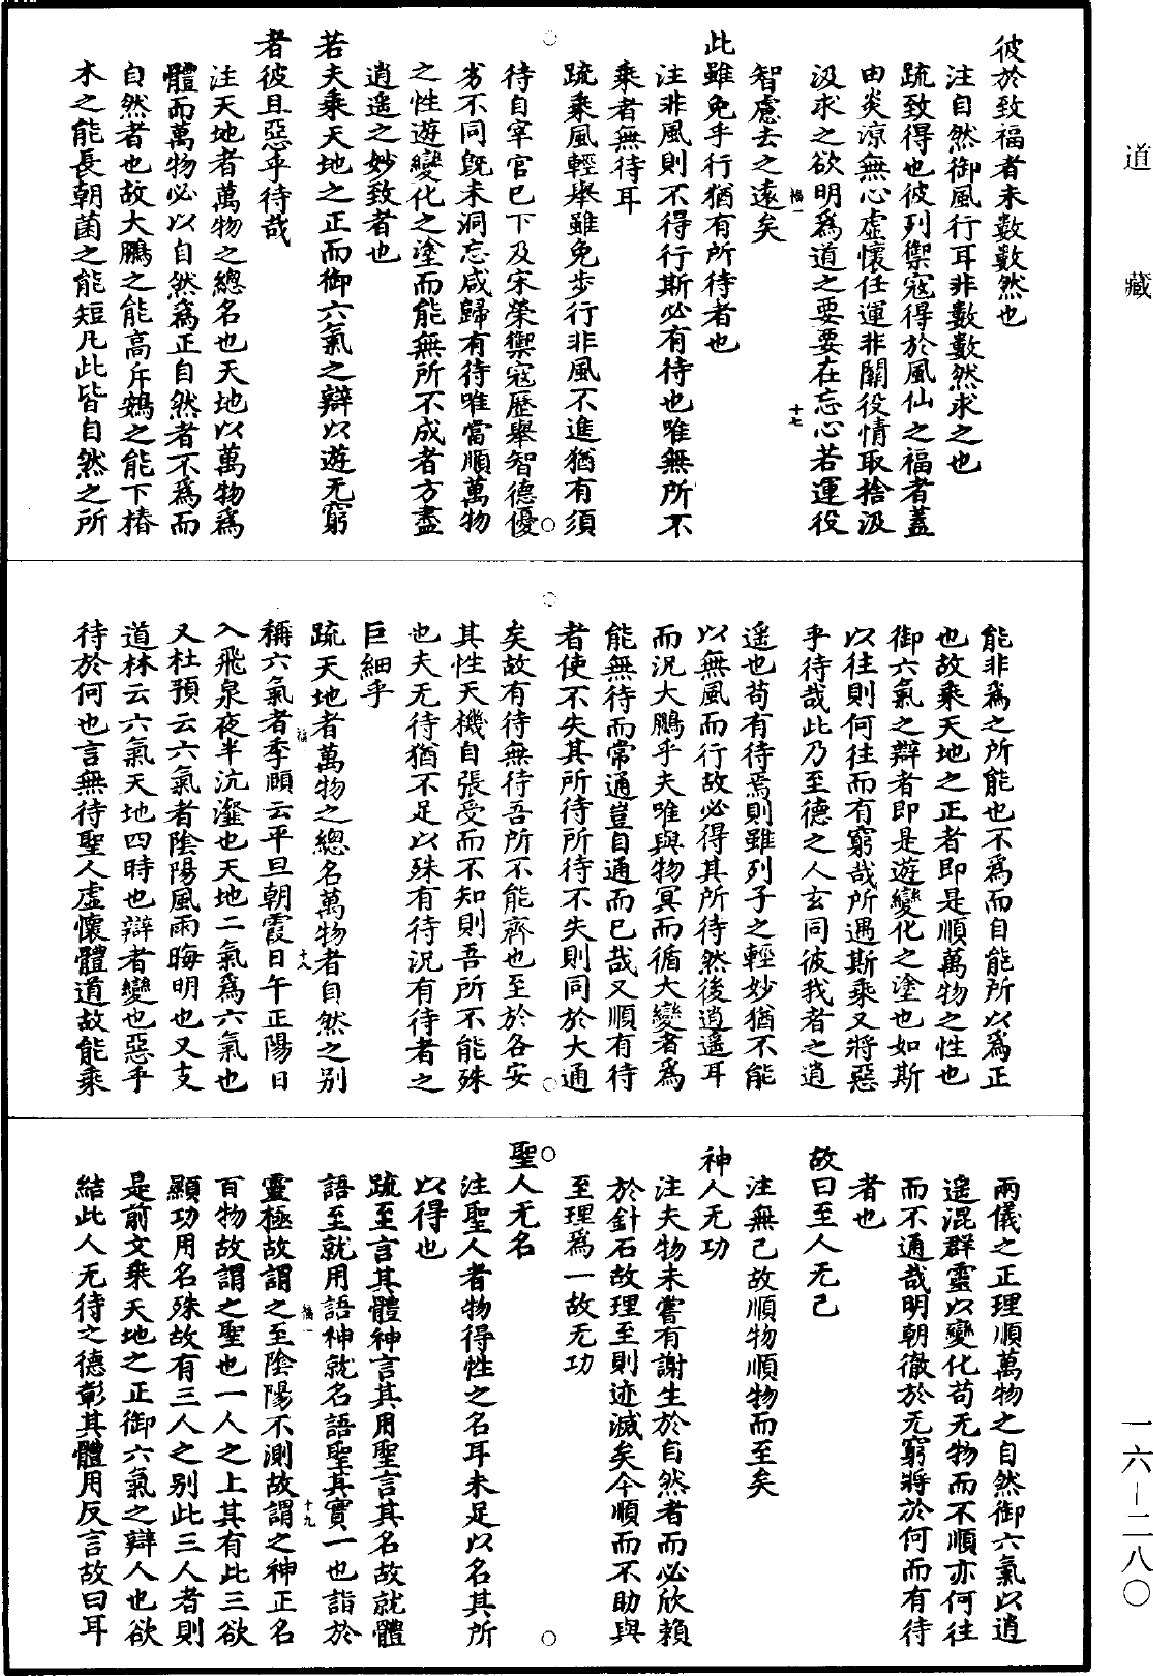 道藏
彼於致福者未數數然也
注自然御風行耳非數數然求之也
疏致得也彼列禦寇得於風仙之福者蓋
由炎涼無心虛懷任運非關役情取捨汲
汲求之欲明爲道之要要在忘心若運役
智慮去之遠矣
此雖免乎行猶有所待者也
注非風則不得行斯必有待也唯無所不
乘者無待耳
疏乘風輕舉雖免步行非風不進猶有須
待自宰官已下及宋榮禦寇歷舉智德優
劣不同旣未洞忘咸歸有待唯當順萬物
之性遊變化之塗而能無所不成者方盡
逍遙之妙致者也
若夫乘天地之正而御六氣之辯以遊无窮
者彼且惡乎待哉
注天地者萬物之總名也天地以萬物爲
體而萬物必以自然爲正自然者不爲而
自然者也故大鵬之能高斥鷃之能下椿
木之能長朝菌之能短凡此皆自然之所
能非爲之所能也不爲而自能所以爲正
也故乘天地之正者即是順萬物之性也
御六氣之辯者即是遊變化之塗也如斯
以往則何往而有窮哉所遇斯乘又將惡
乎待哉此乃至德之人玄同彼我者之逍
遙也苟有待焉則雖列子之輕妙猶不能
以無風而行故必得其所待然後逍遙耳
而況大鵬乎夫唯與物冥而循大變者爲
能無待而常通豈自通而已哉又順有待
者使不失其所待所待不失則同於大通
矣故有待無待吾所不能齊也至於各安
其性天機自張受而不知則吾所不能殊
也夫无待猶不足以殊有待況有待者之
巨細乎
疏天地者萬物之總名萬物者自然之別
稱六氣者李頤云平旦朝霞日午正陽日
入飛泉夜半沆瀣也天地二氣爲六氣也
又杜預云六氣者陰陽風雨晦明也又支
道林云六氣天地四時也辯者變也惡乎
待於何也言無待聖人虛懷體道故能乘
兩儀之正理順萬物之自然御六氣以逍
遙混群靈以變化苟无物而不順亦何往
而不通哉明朝徹於无窮將於何而有待
者也
故曰至人无己
注無己故順物順物而至矣
神人无功
注夫物未嘗有謝生於自然者而必欣賴
於針石故理至則迹滅矣今順而不助與
至理爲一故无功
聖人无名
注聖人者物得性之名耳未足以名其所
以得也
疏至言其體神言其用聖言其名故就體
語至就用語神就名語聖其實一也詣於
靈極故謂之至陰陽不測故謂之神正名
百物故謂之聖也一人之上其有此三欲
顯功用名殊故有三人之別此三人者則
是前文乘天地之正御六氣之辯人也欲
結此人无待之德彰其體用反言故曰耳
一六-二八〇